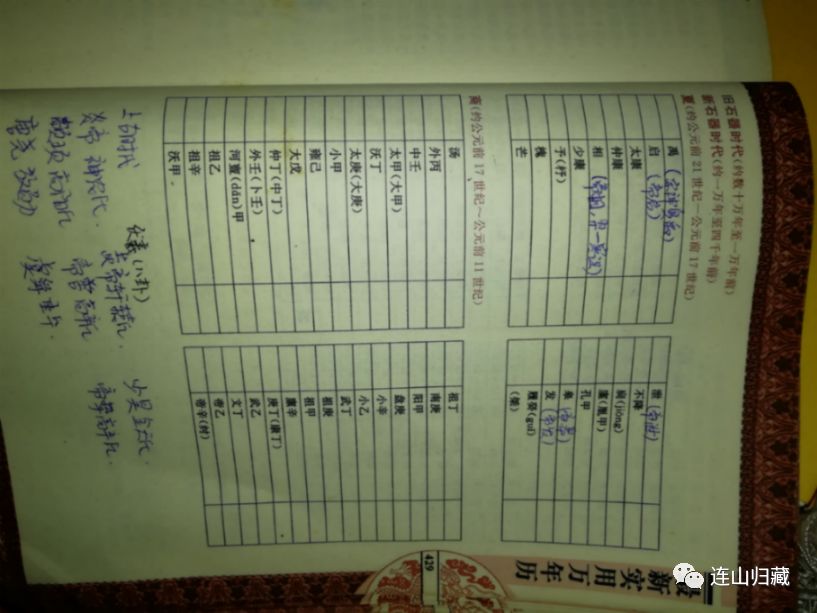 旧石器时代(约数十万年至一万年前)
新石器时代(约一万年至四千年前)
夏(约公元前21世纪—公元前17世纪)
禹
启(帝启)
太康
仲康
相
少康
予(杼)
槐
芒
泄(帝泄)
不降
扃(jiōng)
廑(胤甲)
孔甲
皋(帝皋)
发(帝发)
履癸(guǐ)
(桀)
商(约公元前17世纪~公元前11世纪)
汤
外丙
中壬
太甲(大甲)
沃丁
太庚(大庚)
小甲
雍己
大戊
仲丁(中丁)
外壬(卜壬)
河亶(dǎn)甲
祖乙
祖辛
沃甲
祖丁
南庚
阳甲
盘庚
小辛
小乙
武丁
祖庚
祖甲
廪辛
庚丁(康丁)
武乙
文丁
帝乙
帝辛(纣)
上古时代
伏羲(八卦)
炎帝 神农氏.
黄帝轩辕氏.
少昊金天氏.
颛顼高阳氏
帝喾高辛氏
唐尧
虞舜
429
新实用万年历
连山归藏